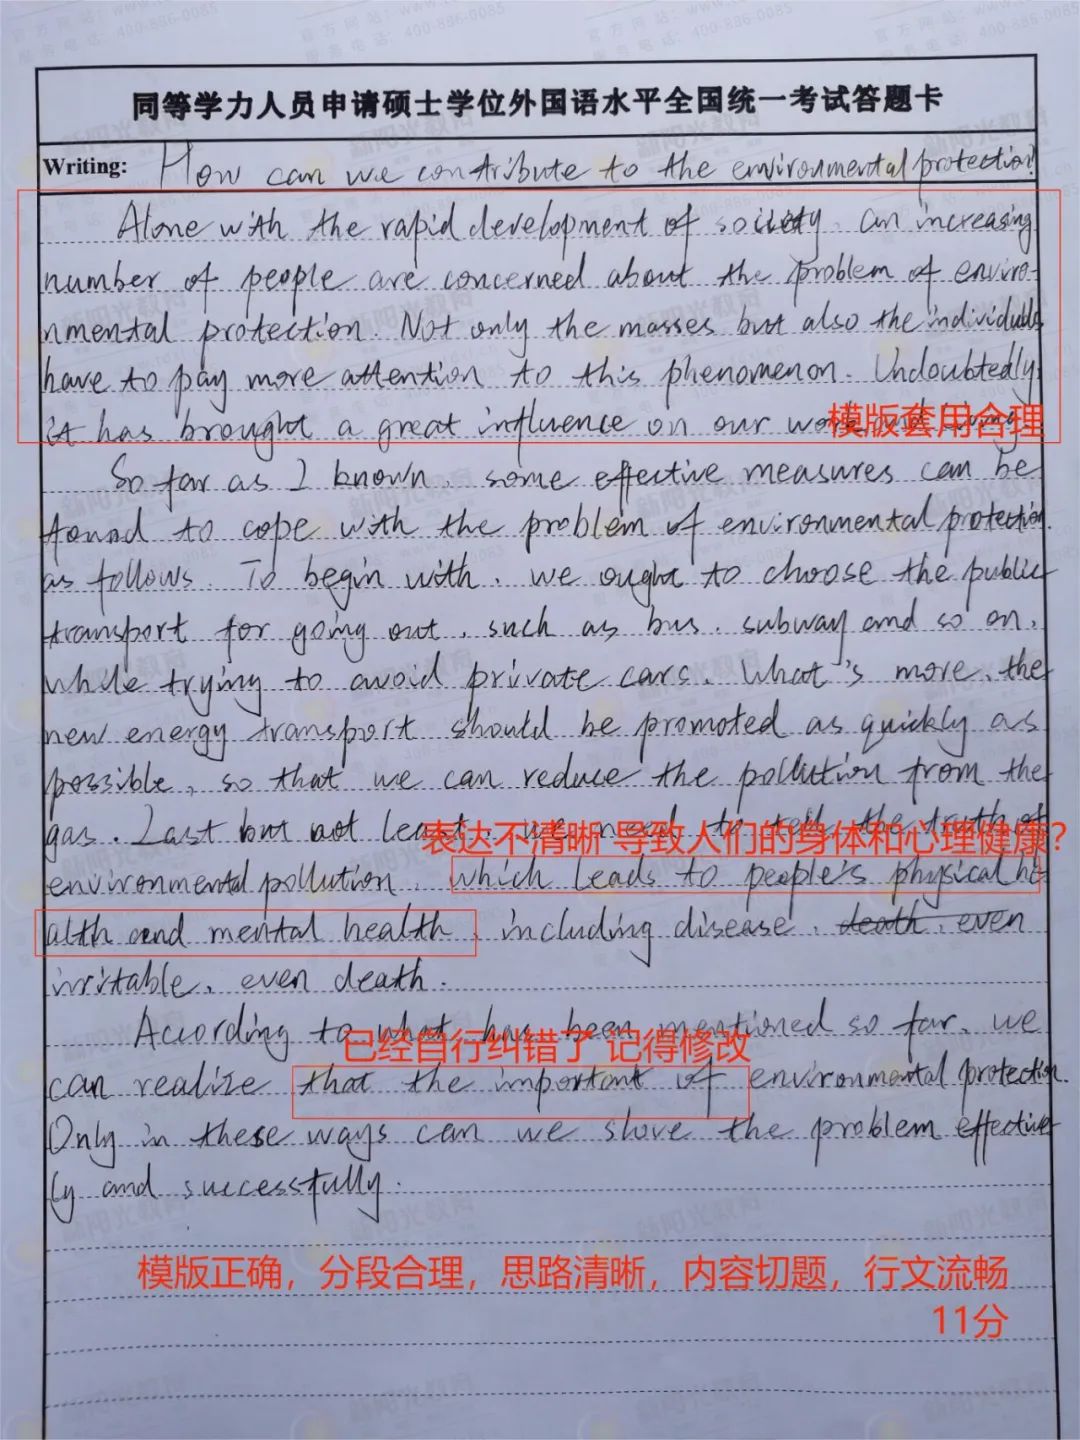 同等学力人员申请硕士学位外国语水平全国统一考试答题卡
Writing: How can we contribute to the environmental protection?
Alone with the rapid development of society, an increasing
number of people are concerned about the problem of enviro-
nmental protection. Not only the masses but also the individuals
have to pay more attention to this phenomenon. Undoubtedly,
it has brought a great influence on our work
模版套用合理
So far as I known, some effective measures can be
found to cope with the problem of environmental protection
as follows. To begin with, we ought to choose the public
transport for going out, such as bus, subway and so on,
while trying to avoid private cars. What's more, the
new energy transport should be promoted as quickly as
possible, so that we can reduce the pollution from the
gas. Last but not least, we need to tell the truth of
表达不清晰 导致人们的身体和心理健康?
environmental pollution, which leads to people's physical he
alth and mental health, including disease, death, even
irritable, even death.
According to what has been mentioned so far, we
已经自行纠错了 记得修改
can realize that the important of environmental protection.
Only in these ways can we slove the problem effective
ly and successfully.
模版正确，分段合理，思路清晰，内容切题，行文流畅
11分